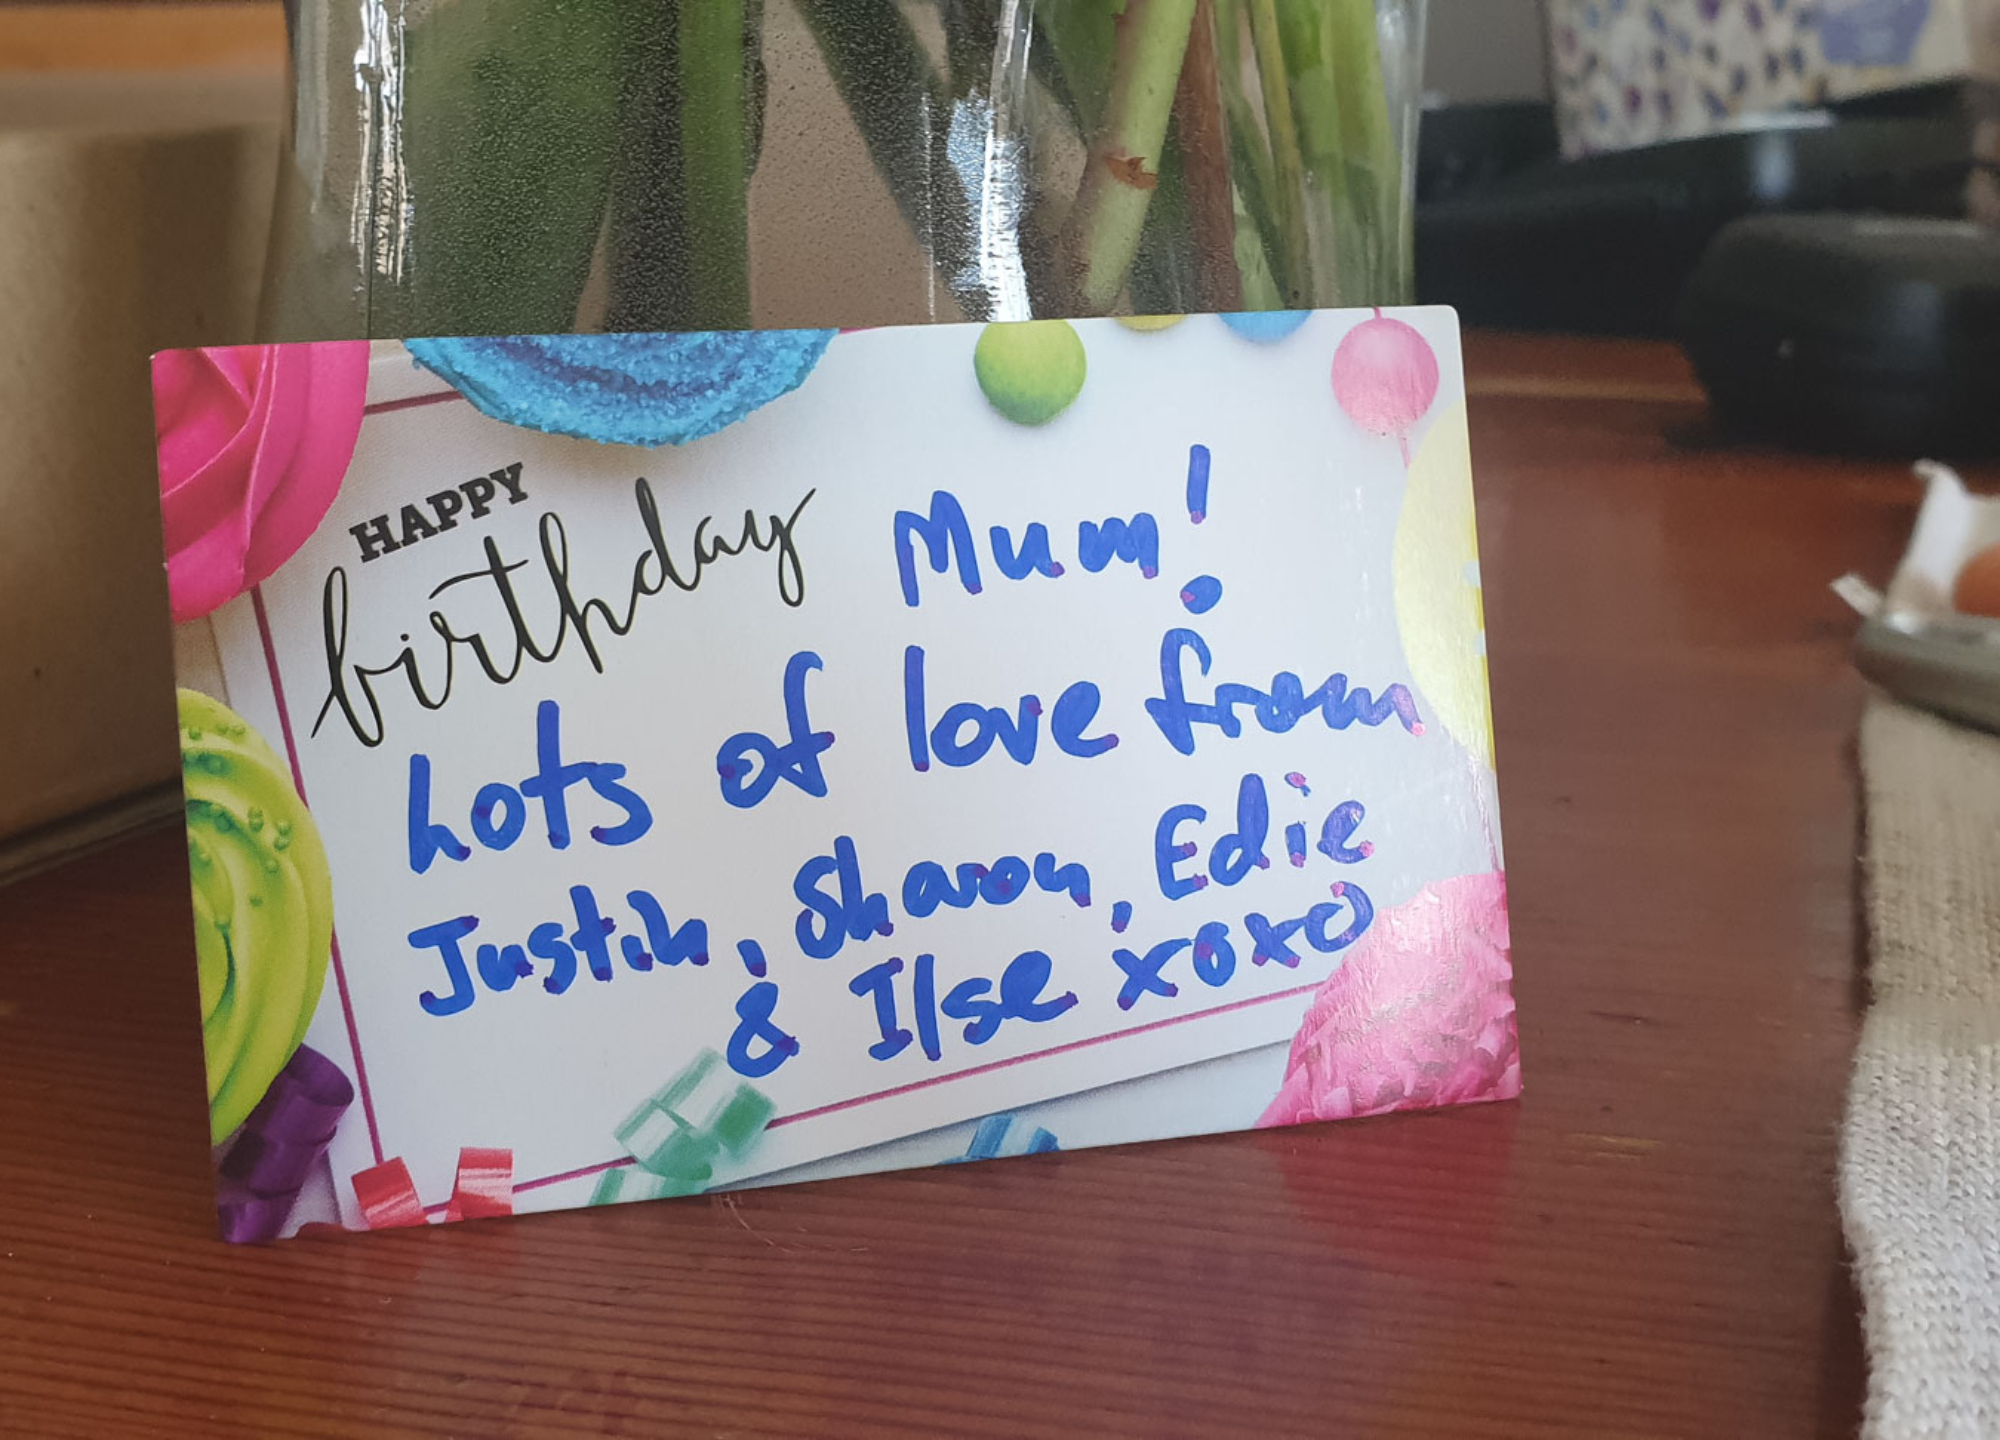 HAPPY
birthday Mum!
Lots of love from
Justin, Sharon, Edie
& Ilse xoxo